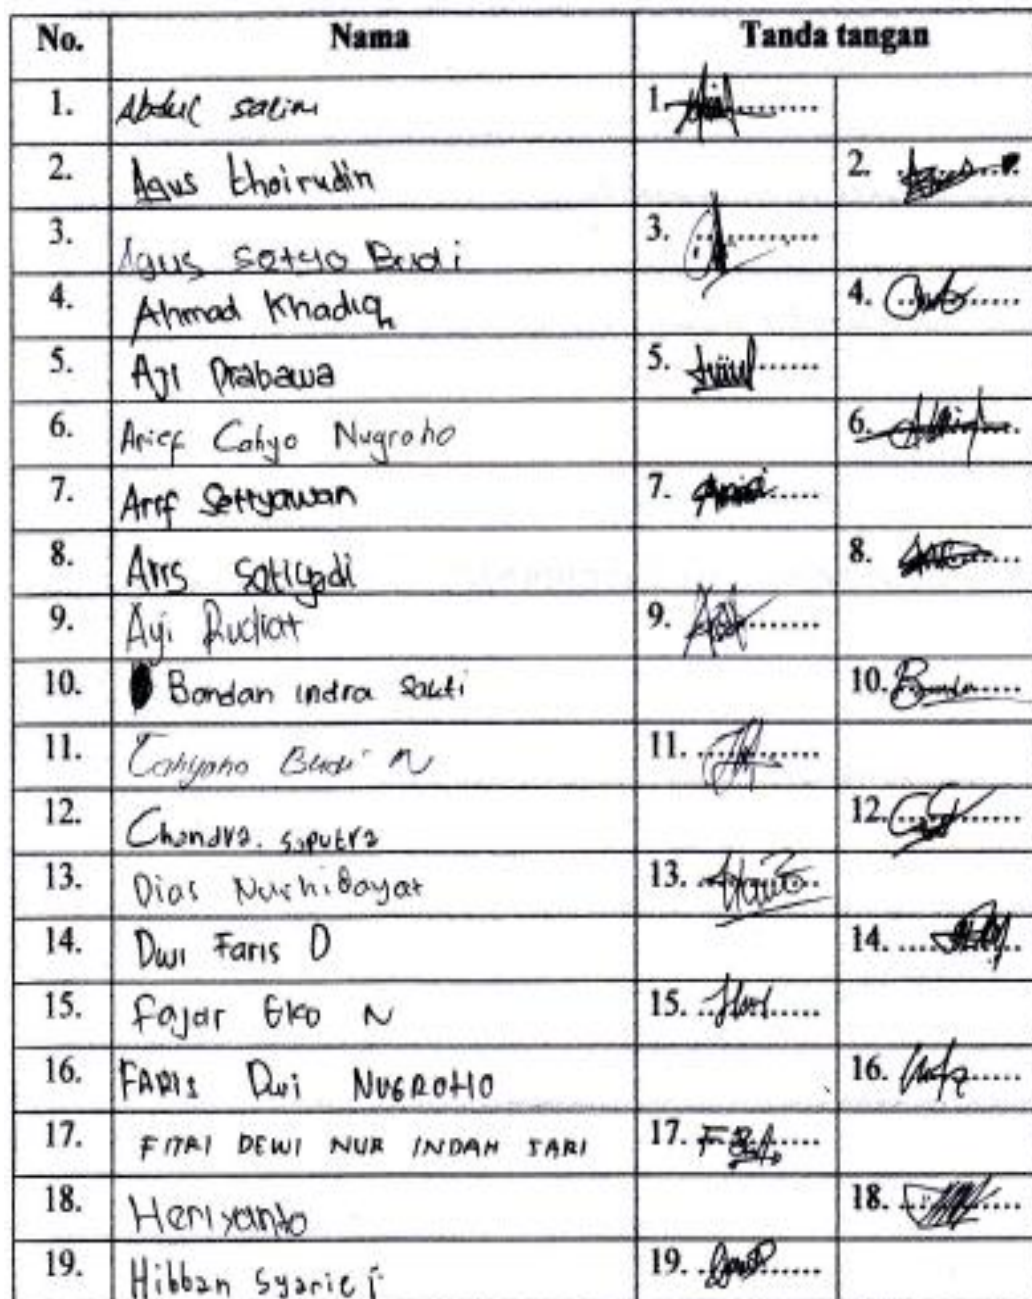 No. Nama Tanda tangan
1. Abdul Salim 1. ............
2. Agus Khoirudin 2. ............
3. Agus Setyo Budi 3. ............
4. Ahmad Khadiq 4. ............
5. Aji Prabawa 5. ............
6. Arief Cahyo Nugroho 6. ............
7. Arif Settyawan 7. ............
8. Aris Setiyadi 8. ............
9. Ayi Rudiat 9. ............
10. Bondan indra Sakti 10. ............
11. Cahyono Budi N 11. ............
12. Chandra. saputra 12. ............
13. Dias Nurhidayat 13. ............
14. Dwi Faris D 14. ............
15. Fajar Eko N 15. ............
16. FARIS Dwi NUGROHO 16. ............
17. FITRI DEWI NUR INDAH SARI 17. ............
18. Heriyanto 18. ............
19. Hibban Syarief 19. ............